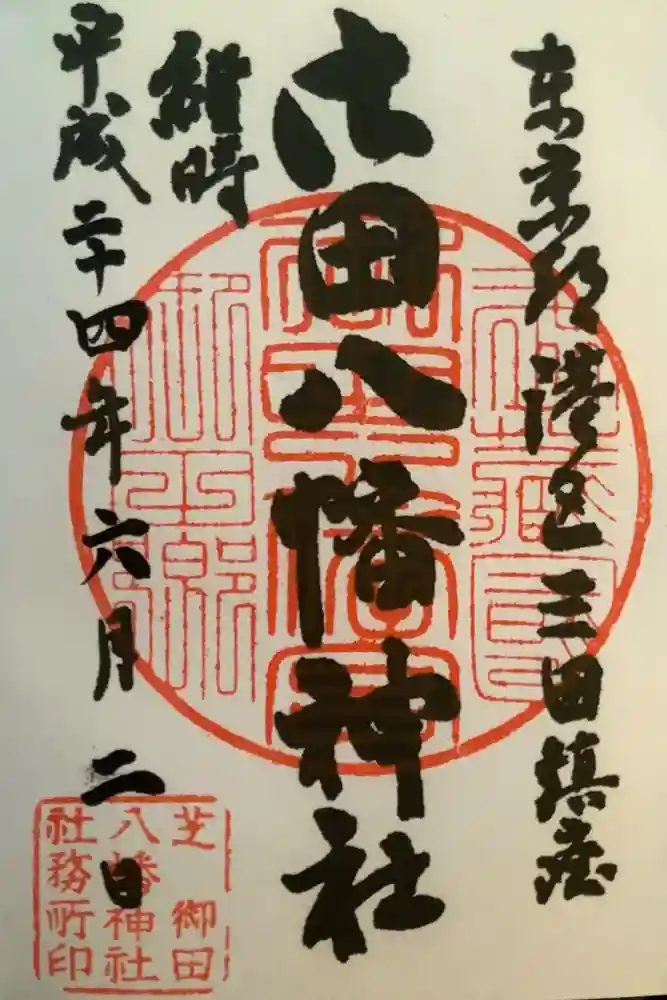 東京都港区三田鎮座
御田八幡神社
維時
平成二十四年六月二日
芝 御田
八幡神社
社務所印